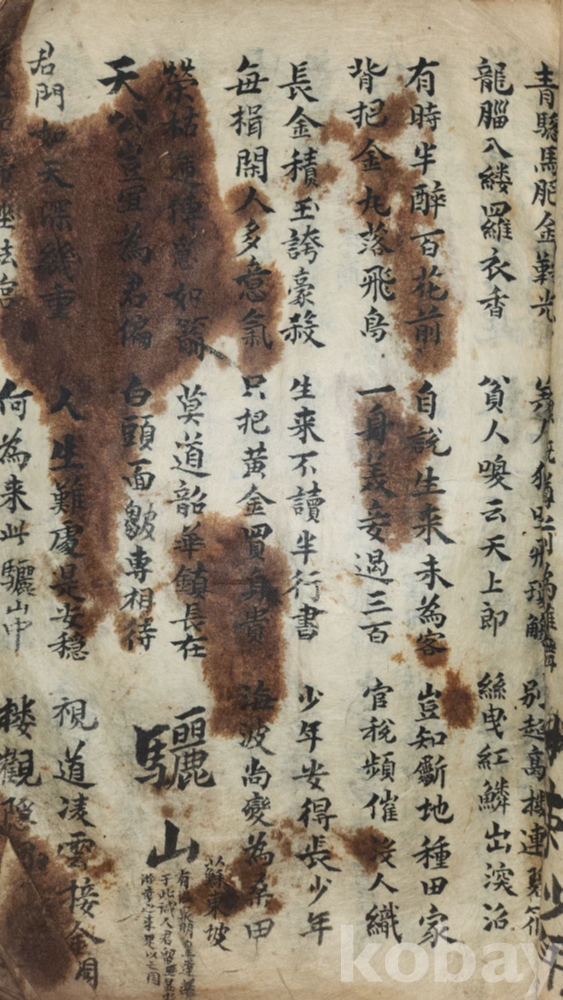 青驄馬肥金鞍光 別起高樓連
龍腦入縷羅衣香 貧人喚云天上郎 絲曳紅鱗出深沼
有時半醉百花前 自說生来未為客 豈知斸地種田家
背把金丸落飛鳥 一身美妾過三百 官稅頻催沒人織
長金積玉誇豪毅 生来不讀半行書 少年安得長少年
每揖閑人多意氣 只把黃金買身貴 海波尚變為桑田
榮枯遞傳急如箭 莫道韶華鎮長在 蘇東坡
天公豈宜為君偏 白頭面皺專相待 驪山
君門如天深幾重 人生難處是安穩 複道凌雲接金闕
坐法宮 何為来此驪山中 樓觀隱
kobay